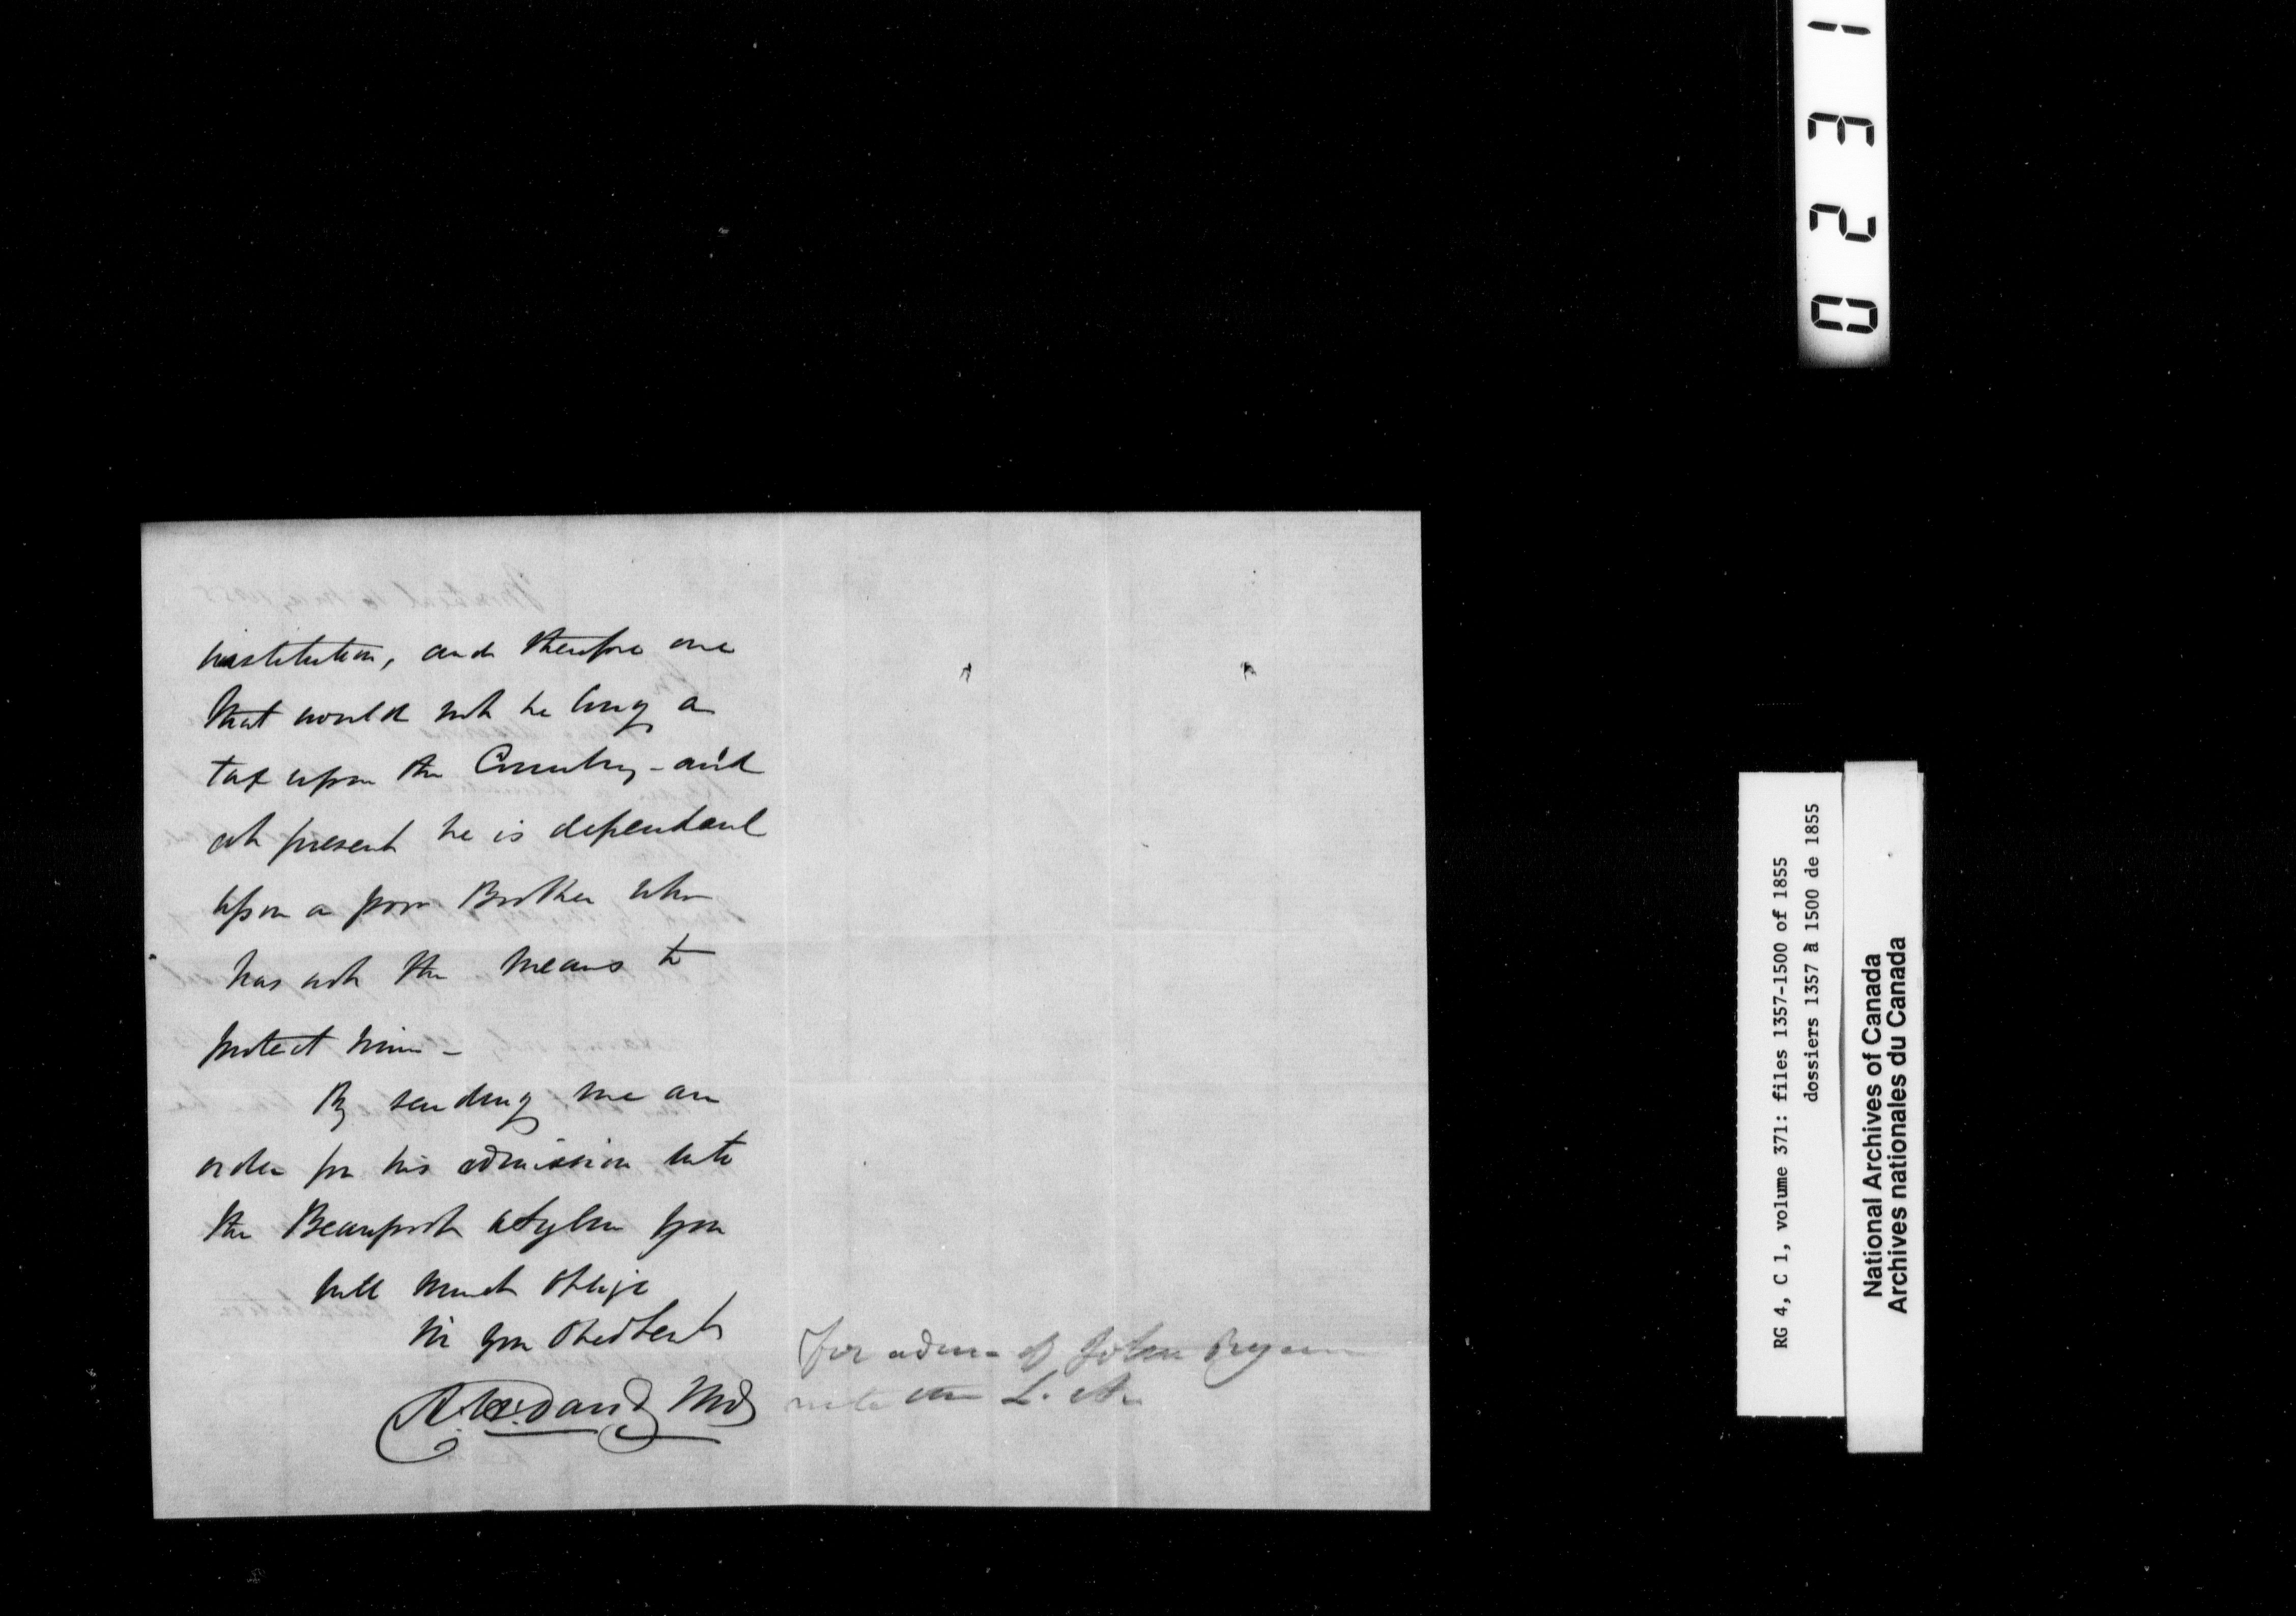 institution, and therefore one
that would not be long a
tax upon the Country - and
at present he is dependant
upon a poor Brother who
has not the means to
protect him -
By sending me an
order for his admission into
the Beauport Asylum you
will much oblige
Sir your Obedient
A. H. David MD
For admn of John Ryan
into the L. A.
0231
RG 4, C 1, volume 371: files 1357-1500 of 1855
dossiers 1357 à 1500 de 1855
National Archives of Canada
Archives nationales du Canada